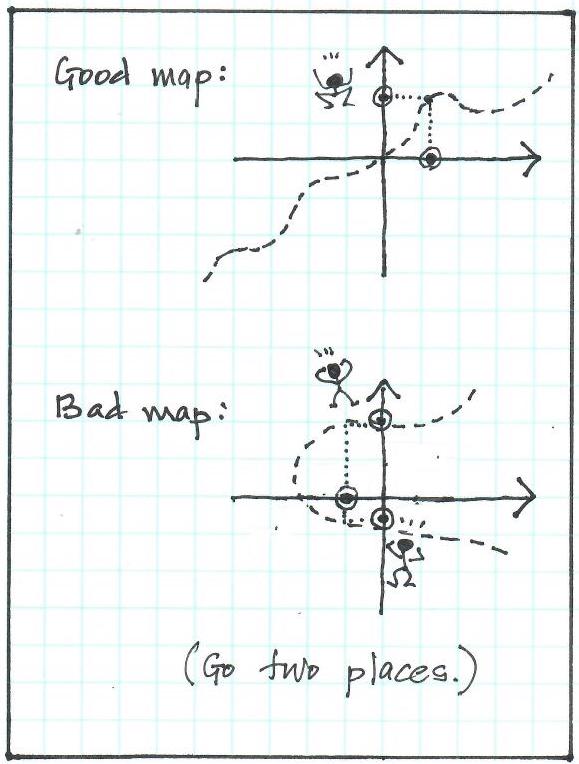 Good map:
Bad map:
(Go two places.)